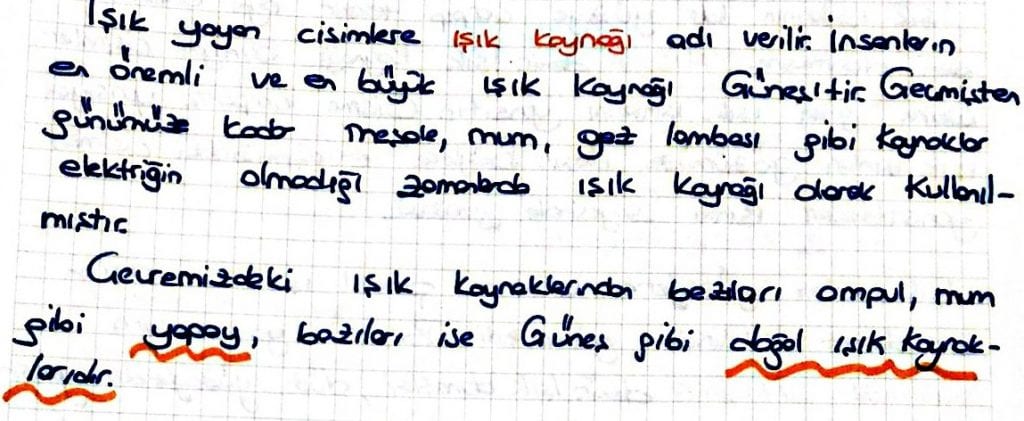 Işık yayan cisimlere ışık kaynağı adı verilir. İnsanların
en önemli ve en büyük ışık kaynağı Güneş'tir. Geçmişten
günümüze kadar meşale, mum, gaz lambası gibi kaynaklar
elektriğin olmadığı zamanlarda ışık kaynağı olarak kullanıl-
mıştır.
Çevremizdeki ışık kaynaklarından bazıları ampul, mum
gibi yapay, bazıları ise Güneş gibi doğal ışık kaynak-
larıdır.